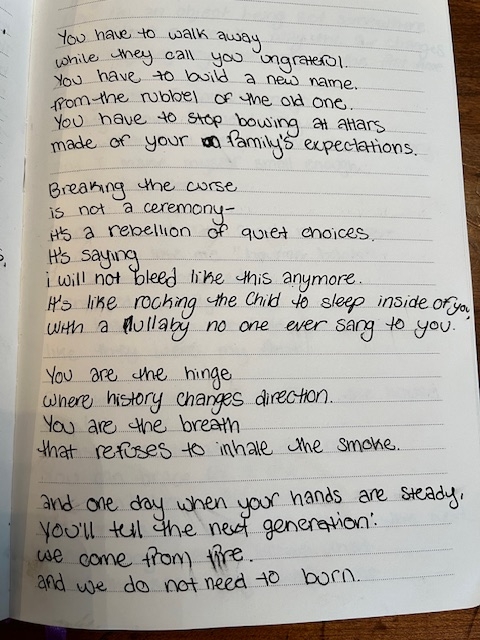 You have to walk away
while they call you ungrateful.
You have to build a new name.
from the rubbel of the old one.
You have to stop bowing at altars
made of your family's expectations.
Breaking the curse
is not a ceremony-
it's a rebellion of quiet choices.
It's saying
i will not bleed like this anymore.
It's like rocking the child to sleep inside of you,
with a lullaby no one ever sang to you.
You are the hinge
where history changes direction.
You are the breath
that refuses to inhale the smoke.
and one day when your hands are steady,
you'll tell the next generation:
we come from fire.
and we do not need to burn.